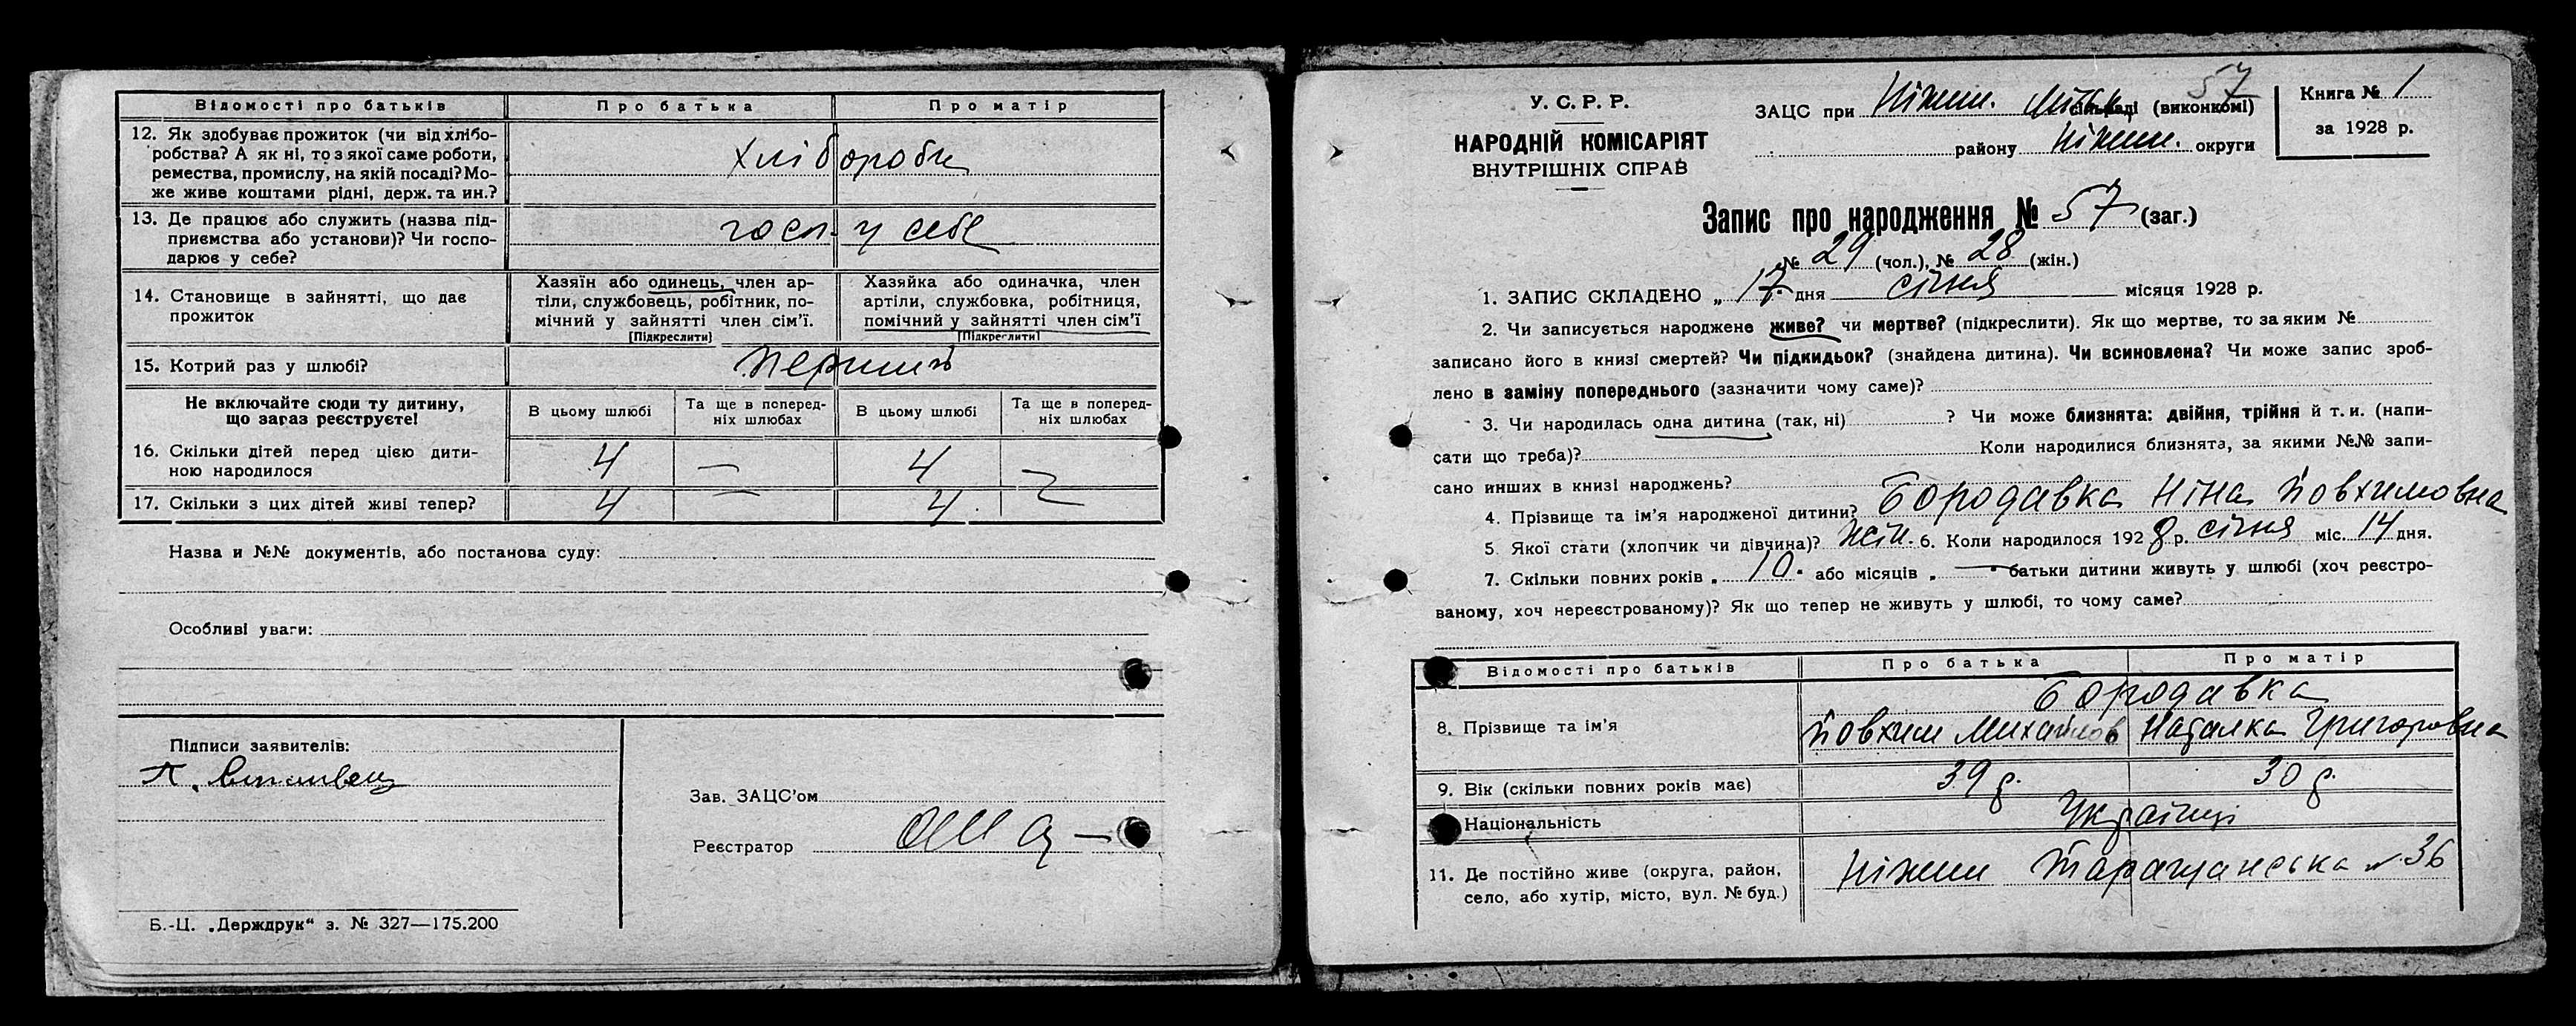 Відомості про батьків Про батька Про матір
12. Як здобуває прожиток (чи від хлібо-
робства? А як ні, то з якої саме роботи,
ремества, промислу, на якій посаді? Мо-
же живе коштами рідні, держ. та ин.?
хлібороби
13. Де працює або служить (назва під-
приємства або установи)? Чи госпо-
дарює у себе?
госп. у себе
14. Становище в зайнятті, що дає
прожиток
Хазяїн або одинець, член ар-
тіли, службовець, робітник, по-
мічний у зайнятті член сім'ї.
[Підкреслити]
Хазяйка або одиначка, член
артіли, службовка, робітниця,
помічний у зайнятті член сім'ї
[Підкреслити]
15. Котрий раз у шлюбі? перший
Не включайте сюди ту дитину,
що зараз реєструєте!
В цьому шлюбі
Та ще в поперед-
ніх шлюбах
В цьому шлюбі
Та ще в поперед-
ніх шлюбах
16. Скільки дітей перед цією дити-
ною народилося
4 — 4
17. Скільки з цих дітей живі тепер? 4 — 4
Назва и №№ документів, або постанова суду:
Особливі уваги:
Підписи заявителів:
Зав. ЗАЦС'ом
Реєстратор
Б.-Ц. „Держдрук“ з. № 327—175.200
57
У. С. Р. Р.
НАРОДНІЙ КОМІСАРІЯТ
ВНУТРІШНІХ СПРАВ
ЗАЦС при Ніжин. (виконкомі)
району Ніжин. округи
Книга № 1
за 1928 р.
Запис про народження № 57 (заг.)
№ 29 (чол.), № 28 (жін.)
1. ЗАПИС СКЛАДЕНО „ 17 дня січня місяця 1928 р.
2. Чи записується народжене живе? чи мертве? (підкреслити). Як що мертве, то за яким №
записано його в книзі смертей? Чи підкидьок? (знайдена дитина). Чи всиновлена? Чи може запис зроб-
лено в заміну попереднього (зазначити чому саме)?
3. Чи народилась одна дитина (так, ні) ? Чи може близнята: двійня, трійня й т. и. (напи-
сати що треба)? Коли народилися близнята, за якими №№ запи-
сано инших в книзі народжень?
4. Прізвище та ім'я народженої дитини? Бородавка Ніна Йовхимовна
5. Якої стати (хлопчик чи дівчина)? жін. 6. Коли народилось 1928 р. січня міс. 14 дня.
7. Скільки повних років „ 10 “ або місяців „ — “ батьки дитини живуть у шлюбі (хоч реєстро-
ваному, хоч нереєстрованому)? Як що тепер не живуть у шлюбі, то чому саме?
Відомості про батьків Про батька Про матір
Бородавка
8. Прізвище та ім'я Йовхим Михайлов Наталка Григоровна
9. Вік (скільки повних років має) 39 р. 30 р.
Національність Українці
11. Де постійно живе (округа, район,
село, або хутір, місто, вул. № буд.)
Ніжин Таращанська № 36